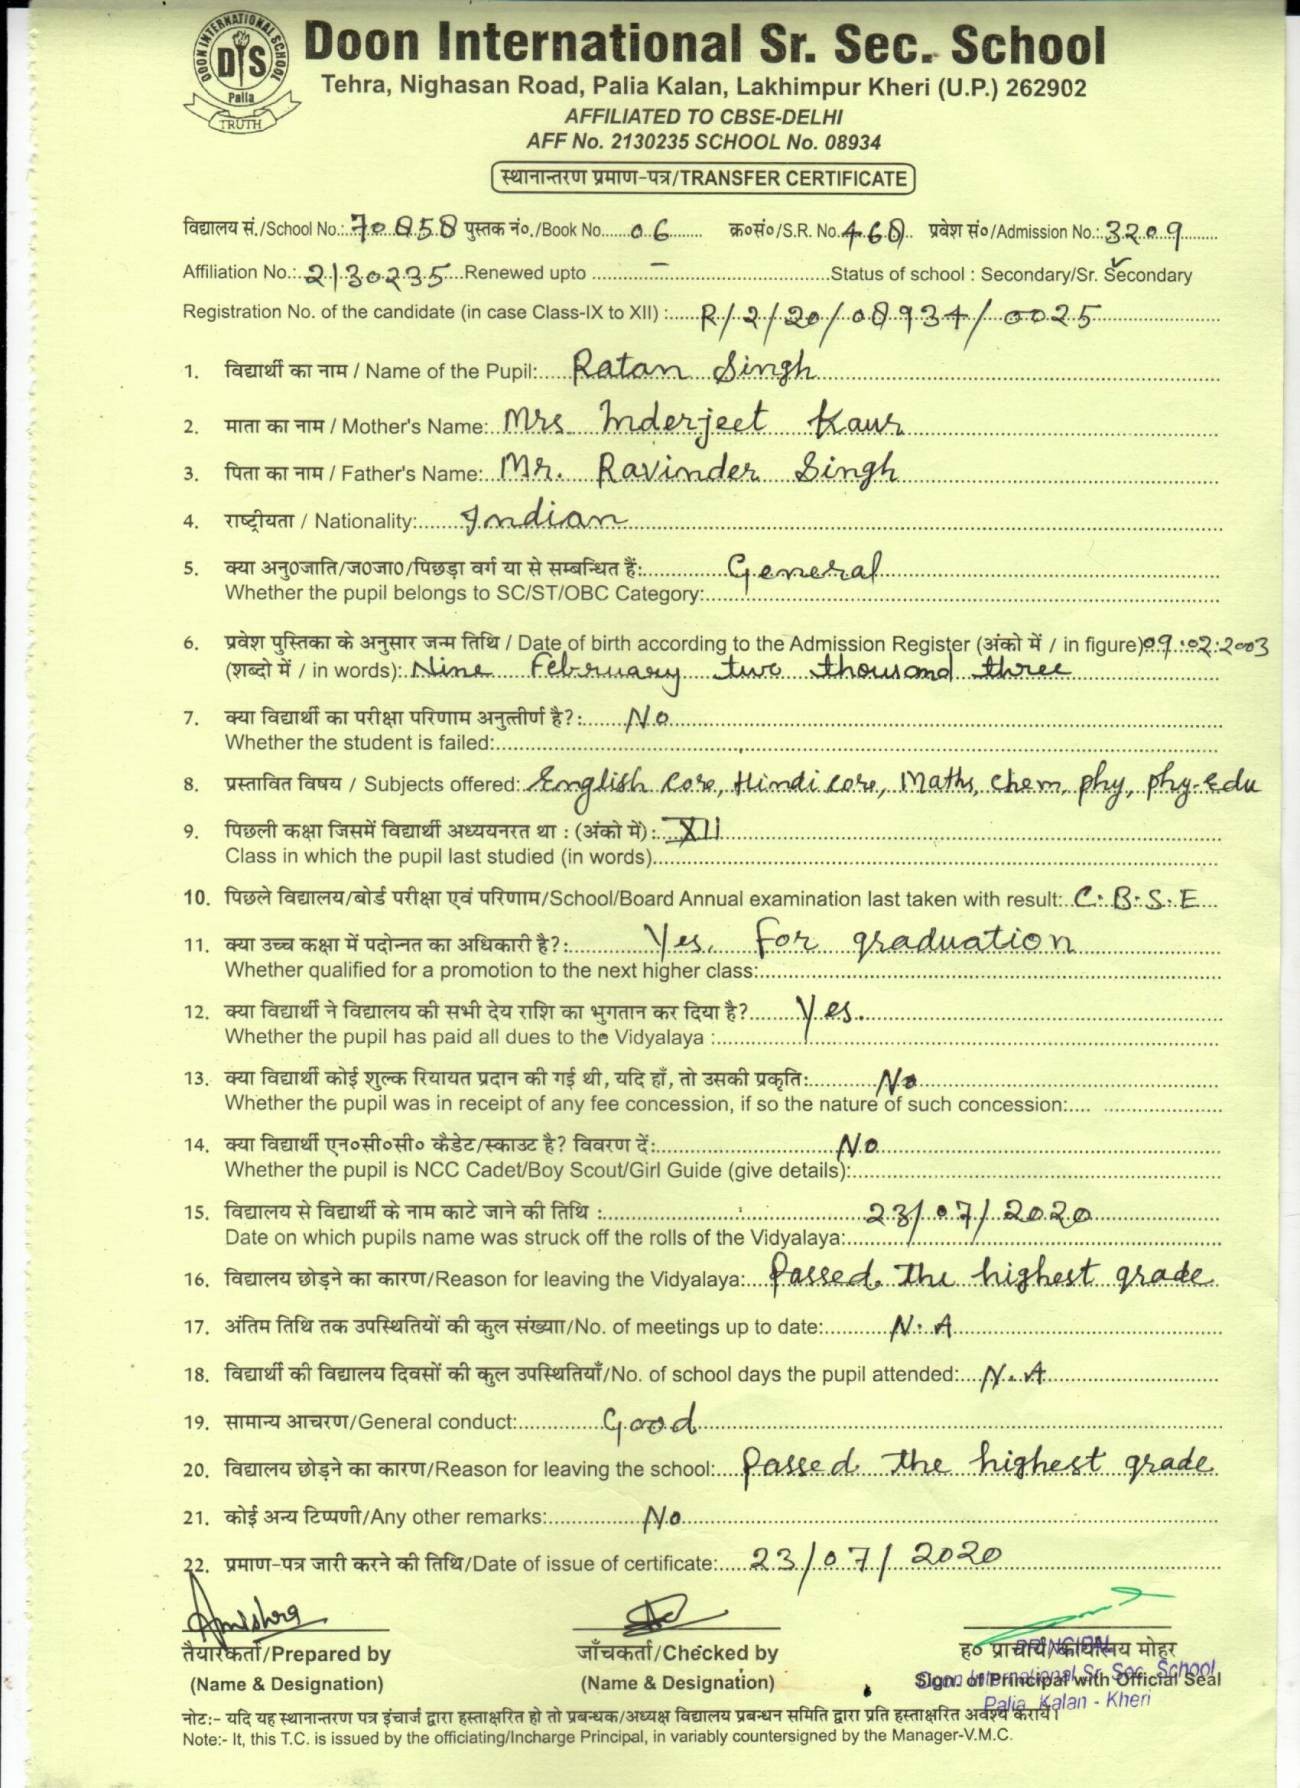 DOON INTERNATIONAL SCHOOL
DIS
Palia
TRUTH
Doon International Sr. Sec. School
Tehra, Nighasan Road, Palia Kalan, Lakhimpur Kheri (U.P.) 262902
AFFILIATED TO CBSE-DELHI
AFF No. 2130235 SCHOOL No. 08934
स्थानान्तरण प्रमाण-पत्र/TRANSFER CERTIFICATE
विद्यालय सं./School No.: 70858 पुस्तक नं०./Book No. 06 क्र०सं०/S.R. No. 468 प्रवेश सं०/Admission No.: 3209
Affiliation No.: 2130235 Renewed upto — Status of school : Secondary/Sr. Secondary
Registration No. of the candidate (in case Class-IX to XII) : R/2/20/08934/0025
1. विद्यार्थी का नाम / Name of the Pupil: Ratan Singh
2. माता का नाम / Mother's Name: Mrs. Inderjeet Kaur
3. पिता का नाम / Father's Name: Mr. Ravinder Singh
4. राष्ट्रीयता / Nationality: Indian
5. क्या अनु०जाति/ज०जा०/पिछड़ा वर्ग या से सम्बन्धित हैं: General
Whether the pupil belongs to SC/ST/OBC Category:
6. प्रवेश पुस्तिका के अनुसार जन्म तिथि / Date of birth according to the Admission Register (अंको में / in figure) 09.02.2003
(शब्दो में / in words): Nine February two thousand three
7. क्या विद्यार्थी का परीक्षा परिणाम अनुत्तीर्ण है?: No
Whether the student is failed:
8. प्रस्तावित विषय / Subjects offered: English core, Hindi core, Maths, chem, phy, phy-edu
9. पिछली कक्षा जिसमें विद्यार्थी अध्ययनरत था : (अंको में) : XII
Class in which the pupil last studied (in words)
10. पिछले विद्यालय/बोर्ड परीक्षा एवं परिणाम/School/Board Annual examination last taken with result: C.B.S.E
11. क्या उच्च कक्षा में पदोन्नत का अधिकारी है?: Yes, For graduation
Whether qualified for a promotion to the next higher class:
12. क्या विद्यार्थी ने विद्यालय की सभी देय राशि का भुगतान कर दिया है? Yes.
Whether the pupil has paid all dues to the Vidyalaya :
13. क्या विद्यार्थी कोई शुल्क रियायत प्रदान की गई थी, यदि हाँ, तो उसकी प्रकृति: No
Whether the pupil was in receipt of any fee concession, if so the nature of such concession:
14. क्या विद्यार्थी एन०सी०सी० कैडेट/स्काउट है? विवरण दें: No
Whether the pupil is NCC Cadet/Boy Scout/Girl Guide (give details):
15. विद्यालय से विद्यार्थी के नाम काटे जाने की तिथि : 23/07/2020
Date on which pupils name was struck off the rolls of the Vidyalaya:
16. विद्यालय छोड़ने का कारण/Reason for leaving the Vidyalaya: Passed the highest grade
17. अंतिम तिथि तक उपस्थितियों की कुल संख्याा/No. of meetings up to date: N.A
18. विद्यार्थी की विद्यालय दिवसों की कुल उपस्थितियाँ/No. of school days the pupil attended: N.A
19. सामान्य आचरण/General conduct: Good
20. विद्यालय छोड़ने का कारण/Reason for leaving the school: Passed the highest grade
21. कोई अन्य टिप्पणी/Any other remarks: No
22. प्रमाण-पत्र जारी करने की तिथि/Date of issue of certificate: 23/07/2020
तैयारकर्ता/Prepared by जाँचकर्ता/Checked by ह० प्राचार्य/कार्यालय मोहर
PRINCIPAL
(Name & Designation) (Name & Designation) Sign. of Principal with Official Seal
Doon International Sr. Sec. School
Palia Kalan - Kheri
नोट:- यदि यह स्थानान्तरण पत्र इंचार्ज द्वारा हस्ताक्षरित हो तो प्रबन्धक/अध्यक्ष विद्यालय प्रबन्धन समिति द्वारा प्रति हस्ताक्षरित अवश्य करायें।
Note:- It, this T.C. is issued by the officiating/Incharge Principal, in variably countersigned by the Manager-V.M.C.